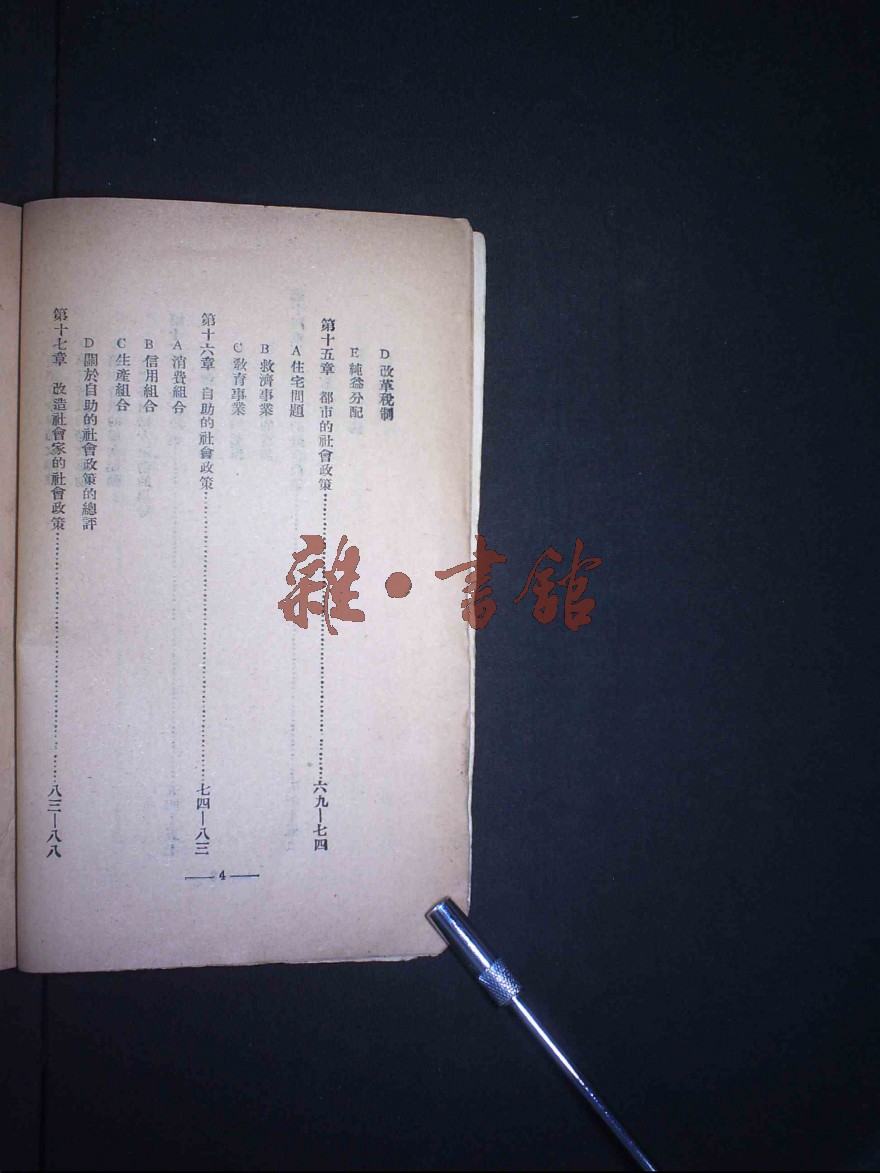 D 改革稅制
E 純益分配
第十五章 都市的社會政策……六九—七四
A 住宅問題
B 救濟事業
C 敎育事業
第十六章 自助的社會政策……七四—八三
A 消費組合
B 信用組合
C 生產組合
D 關於自助的社會政策的總評
第十七章 改造社會家的社會政策……八三—八八
4
雜·書館